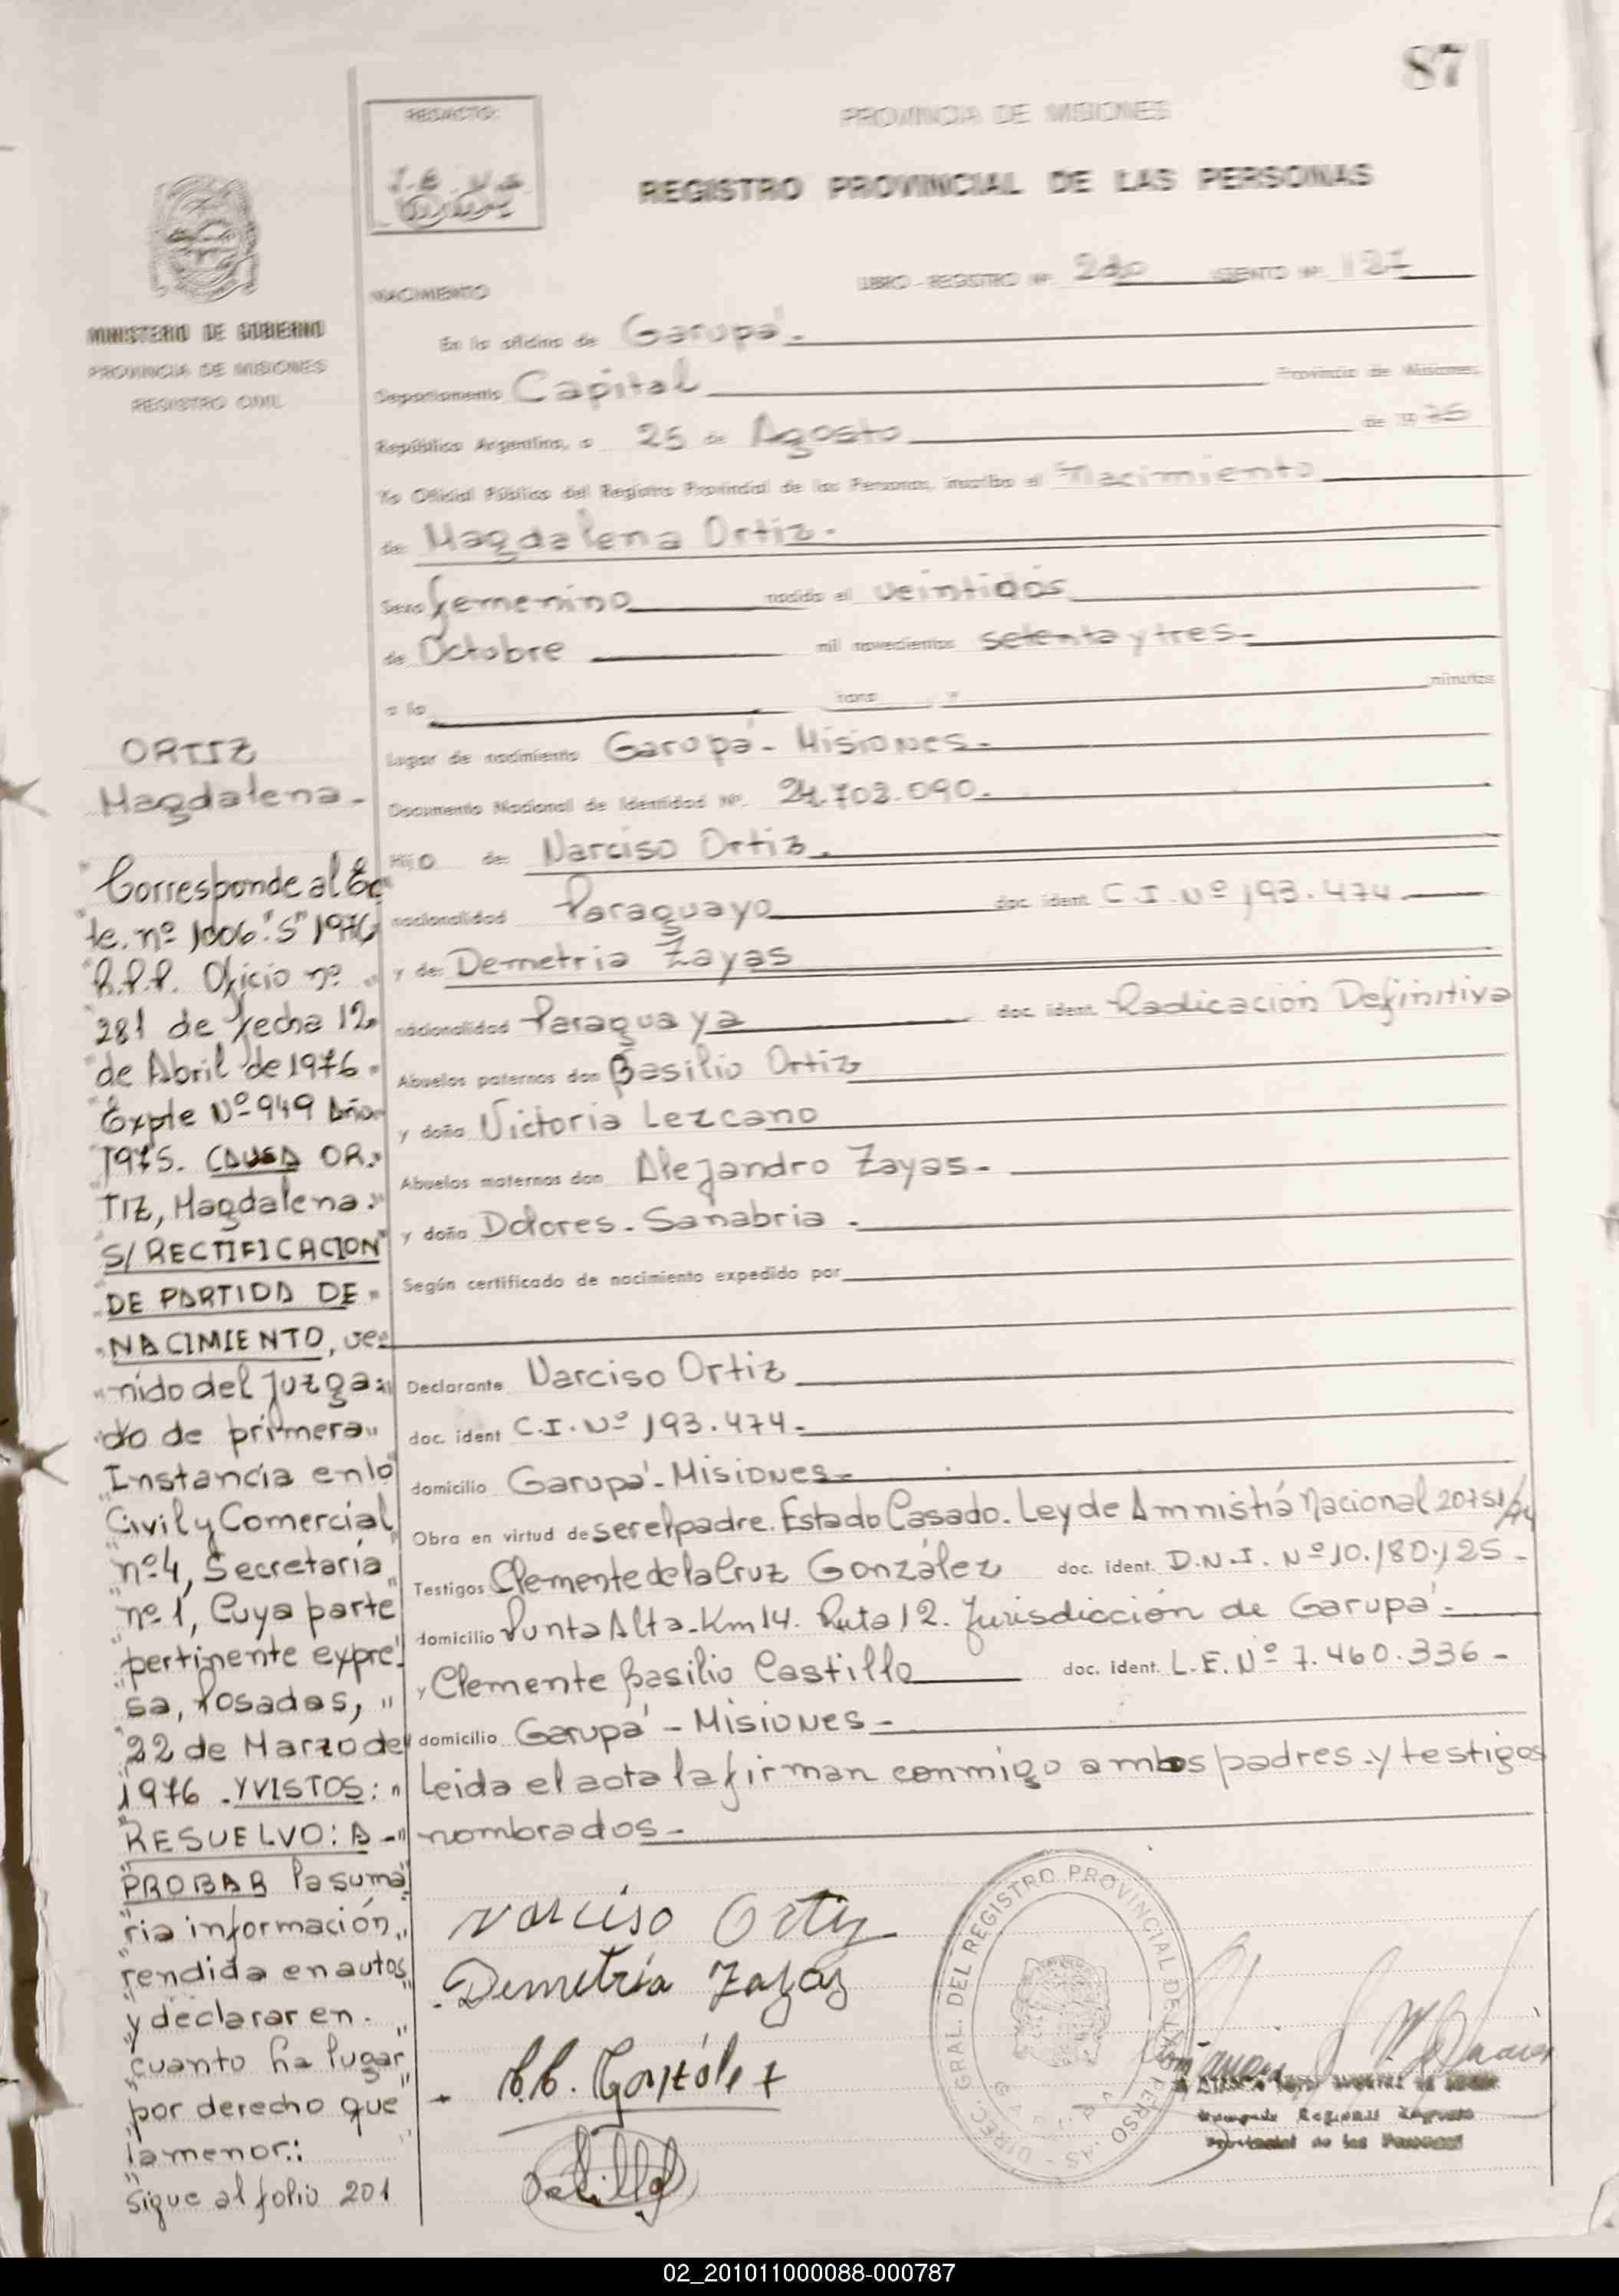 87
REDACTO:
PROVINCIA DE MISIONES
REGISTRO PROVINCIAL DE LAS PERSONAS
MINISTERIO DE GOBIERNO
PROVINCIA DE MISIONES
REGISTRO CIVIL
NACIMIENTO
LIBRO - REGISTRO Nº 2do ASIENTO Nº 127
En la oficina de Garupá.
Departamento Capital Provincia de Misiones.
República Argentina, a 25 de Agosto de 19 75
Yo Oficial Público del Registro Provincial de las Personas, inscribo el Nacimiento
de: Magdalena Ortiz.
Sexo femenino nacido el veintidós
de Octubre mil novecientos setenta y tres.
a la hora y minutos
Lugar de nacimiento Garupá - Misiones.
Documento Nacional de Identidad Nº. 24.703.090.
Hijo de: Narciso Ortiz.
nacionalidad Paraguayo doc. ident. C.I. Nº 193.474.
y de: Demetria Zayas
nacionalidad Paraguaya doc. ident. Radicación Definitiva
Abuelos paternos don Basilio Ortiz
y doña Victoria Lezcano
Abuelos maternos don Alejandro Zayas.
y doña Dolores. Sanabria.
Según certificado de nacimiento expedido por
Declarante Narciso Ortiz
doc. ident C.I. Nº 193.474.
domicilio Garupá - Misiones.
Obra en virtud de ser el padre. Estado Casado. Ley de Amnistía Nacional 20751/74
Testigos Clemente de la Cruz González doc. ident. D.N.I. Nº 10.180.125.
domicilio Punta Alta. Km 14. Ruta 12. Jurisdicción de Garupá.
y Clemente Basilio Castillo doc. ident. L.E. Nº 7.460.336 -
domicilio Garupá - Misiones -
Leida el acta la firman conmigo ambos padres y testigos
nombrados.
Narciso Ortiz
Demetria Zayas
DIREC. GRAL. DEL REGISTRO PROVINCIAL DE LAS PERSONAS
ORTIZ
Magdalena -
"Corresponde al Ec
"te. nº 1006."S" 1976
"R.P.P. Oficio nº "
"281 de fecha 12"
"de Abril de 1976 "
"Expte Nº 949 Año
"1975. CAUSA OR."
TIZ, Magdalena."
S/ RECTIFICACION"
"DE PARTIDA DE "
"NACIMIENTO, ve="
"nido del Juzga="
"do de primera"
"Instancia en lo"
Civil y Comercial"
"nº 4, Secretaría"
"nº 1, Cuya parte
"pertinente expre"
sa, Posadas, "
"22 de Marzo de"
1976. Y VISTOS: "
RESUELVO: A -"
"PROBAR la suma"
ria información"
"rendida en autos"
"y declarar en. "
"cuanto ha lugar"
"por derecho que"
"la menor:
"Sigue al folio 201
02_201011000088-000787